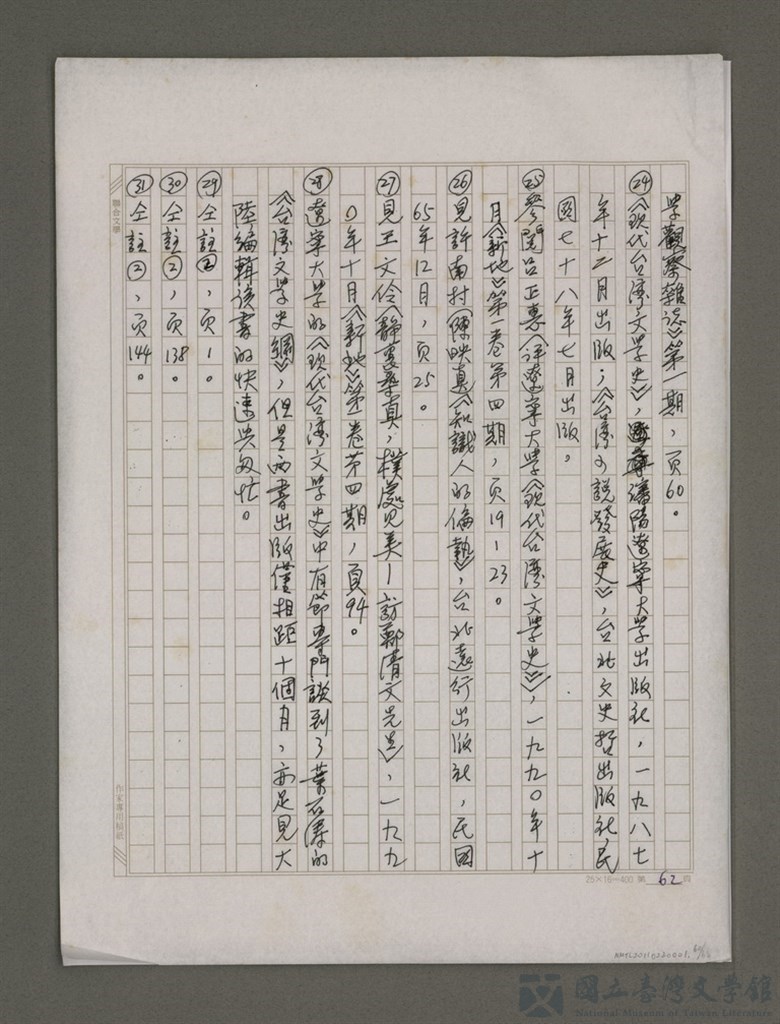 学觀察雜誌》第一期,页60。
㉔《现代台湾文学史》,瀋陽遼寧大学出版社,一九八七
年十二月出版;《台湾小說發展史》,台北文史哲出版社,民
國七十八年七月出版。
㉕參閱呂正惠《評遼寧大学《现代台湾文学史》》,一九九〇年十
月《新地》第一卷第四期,页19-23。
㉖見許南村(陳映真)《知識人的偏執》,台北遠行出版社,民國
65年12月,页25。
㉗見王文伶《靜裏尋真,樸處見美—訪鄭清文先生》,一九九
〇年十月《新地》第一卷第四期,頁94。
㉘遼寧大学的《现代台湾文学史》中有節專門談到了葉石濤的
《台湾文学史綱》,但是兩書出版僅相距十個月,亦足見大
陸編輯該書的快速與匆忙。
㉙仝註②,页1。
㉚仝註②,页138。
㉛仝註②,页144。
聯合文學
作家專用稿紙
25×16=400 第 62 頁
國立臺灣文學館
National Museum of Taiwan Literature